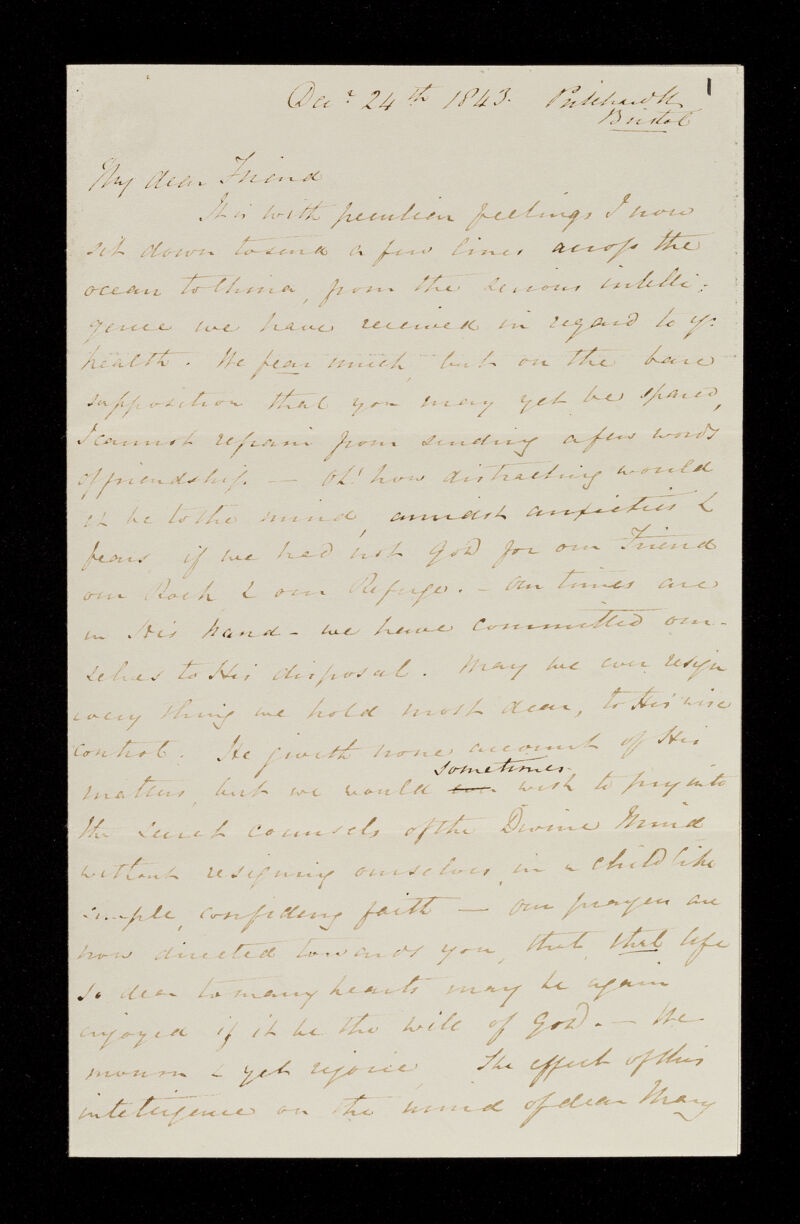 1
Decr 24th 1843.
Bristol
My dear Friend
It is with peculiar feelings I now
sit down to send a few lines across the
ocean to China, from the serious intelli-
gence we have received in regard to yr
health. We fear much, but on the bare
supposition that you may yet be spared,
I cannot refrain from sending a few words
of friendship. — Oh! how distracting would
it be to the mind, amidst anxieties &
fears, if we had not God for our Friend
our Rock & our Refuge. - Our times are
in His hand - we have committed our-
selves to His disposal. May we ever resign
every thing we hold most dear, to His wise
control. He giveth none account of His
matters, but we would sometimes wish to pry into
the secret counsels of the Divine Mind
without resigning ourselves, in a child like
simple, confiding faith — Our prayers are
now directed towards you, that that life
so dear to many hearts may be again
enjoyed if it be the will of God. — We
mourn & yet rejoice. The effect of this
intelligence on the mind of dear Mary